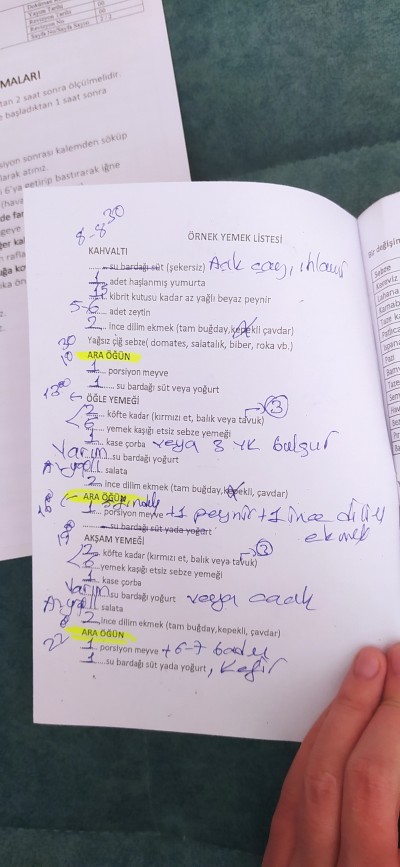 Doküman
Yayın Tarihi
Revizyon Tarihi
Revizyon No
Sayfa No/Sayfa Sayısı
MALARI
tan 2 saat sonra ölçülmelidir.
başladıktan 1 saat sonra
siyon sonrası kalemden söküp
larak atınız.
6'ya getirip bastırarak iğne
8-8 30
ÖRNEK YEMEK LİSTESİ
KAHVALTI
...... su bardağı süt (şekersiz) Açık çay, ıhlamur
1 adet haşlanmış yumurta
kibrit kutusu kadar az yağlı beyaz peynir
5-6 adet zeytin
2 ince dilim ekmek (tam buğday,kepekli çavdar)
Yağsız çiğ sebze( domates, salatalık, biber, roka vb.)
10 30 ARA ÖĞÜN
1 porsiyon meyve
1 su bardağı süt veya yoğurt
13 00 ÖĞLE YEMEĞİ
2 köfte kadar (kırmızı et, balık veya tavuk) → 3
6 yemek kaşığı etsiz sebze yemeği
1 kase çorba veya 3 yk bulgur
Yarım su bardağı yoğurt
salata
2 ince dilim ekmek (tam buğday,kepekli, çavdar)
ARA ÖĞÜN
1 porsiyon meyve +1 peynir+1 ince dilim ekmek
...... su bardağı süt yada yoğurt
AKŞAM YEMEĞİ
2 köfte kadar (kırmızı et, balık veya tavuk) → 3
6 yemek kaşığı etsiz sebze yemeği
1 kase çorba
Yarım su bardağı yoğurt veya cacık
salata
2 ince dilim ekmek (tam buğday,kepekli, çavdar)
ARA ÖĞÜN
1 porsiyon meyve +6-7 badem
1 su bardağı süt yada yoğurt, Kefir
Bir değişim
Sebze
Kereviz
Lahana